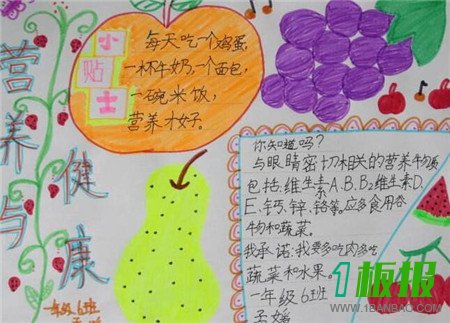 营养与健康
小贴士
每天吃一个鸡蛋,
一杯牛奶,一个面包,
一碗米饭,
营养才好。
你知道吗?
与眼睛密切相关的营养物质
包括:维生素A、B、B2维生素D、
E、钙、锌、铬等。应多食用谷
物和蔬菜。
我承诺:我要多吃肉多吃
蔬菜和水果。
一年级6班
孟媛
一年级6班
1板报
WWW.1BANBAO.COM